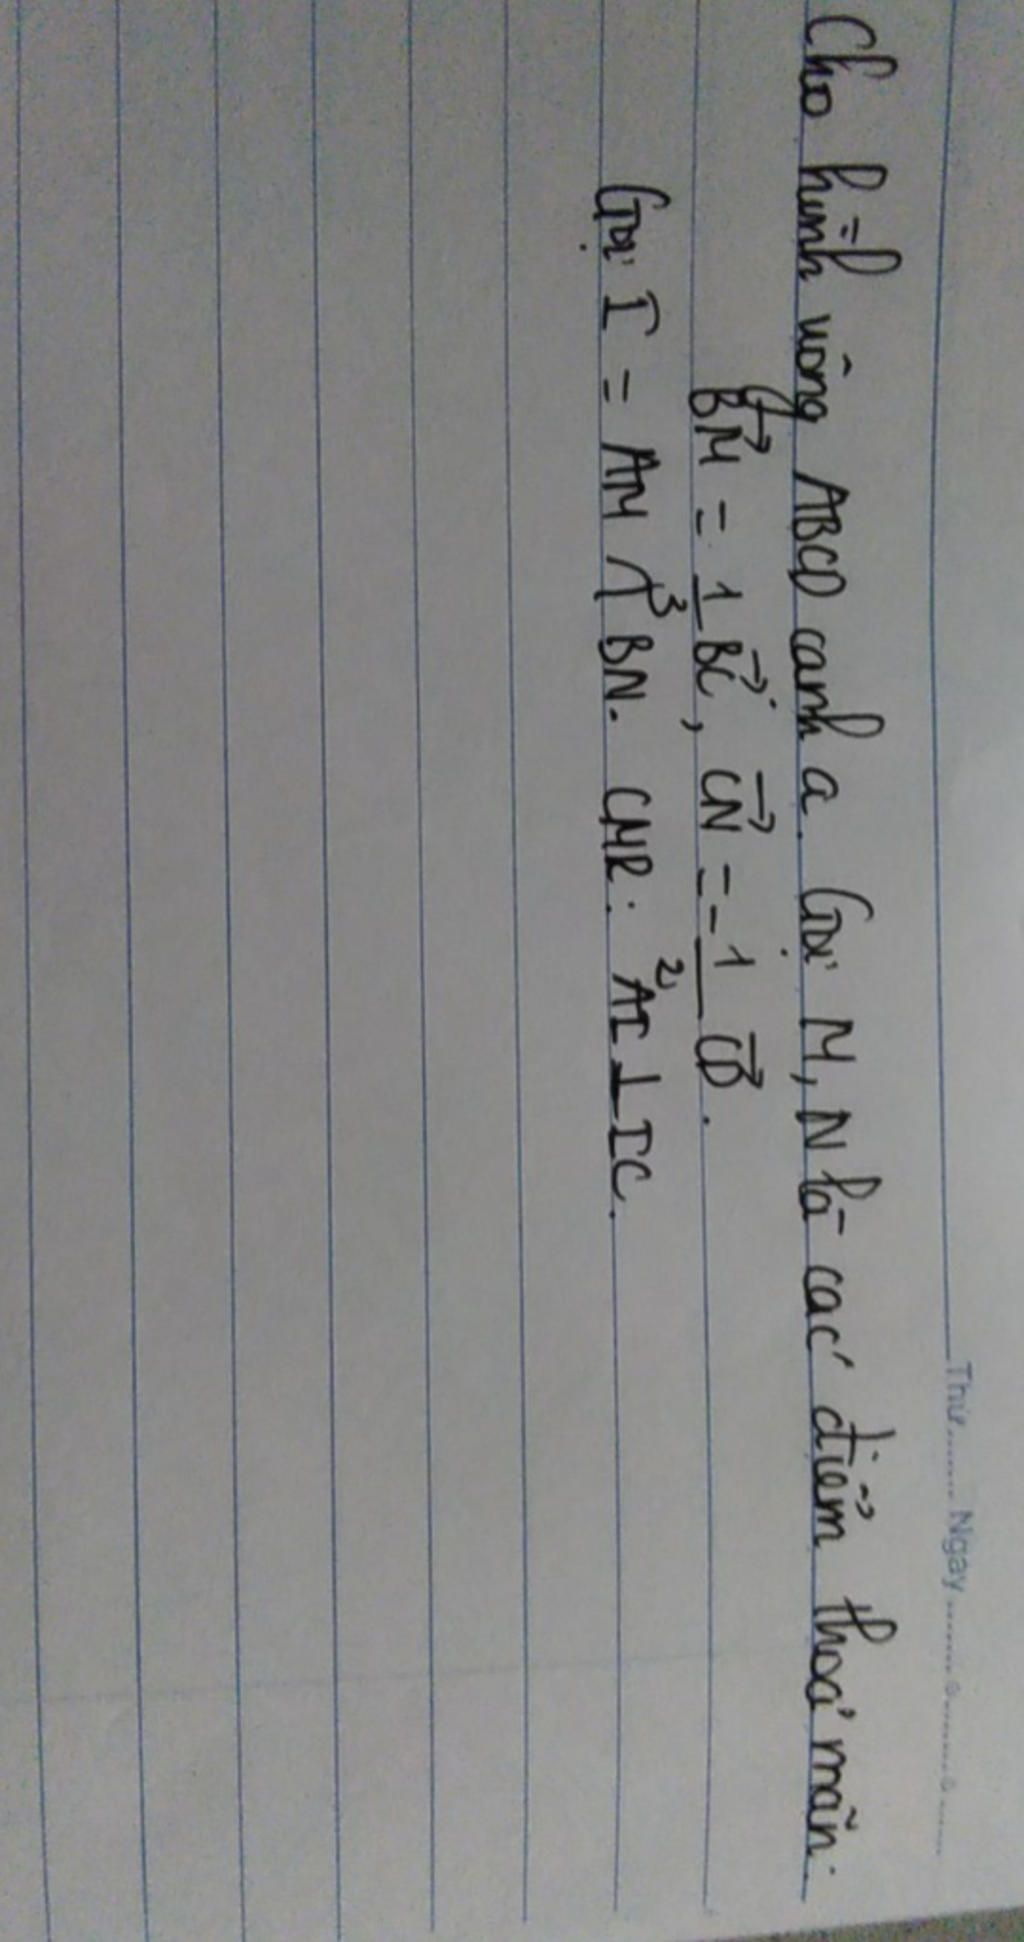 Thứ........ Ngày ........ ........ ........
Cho hình vuông ABCD cạnh a. Gọi M, N là các điểm thoả mãn:
BM→ = 1/3 BC→, CN→ = -1/2 CD→.
Gọi I = AM ∩ BN. CMR: AI ⊥ IC.